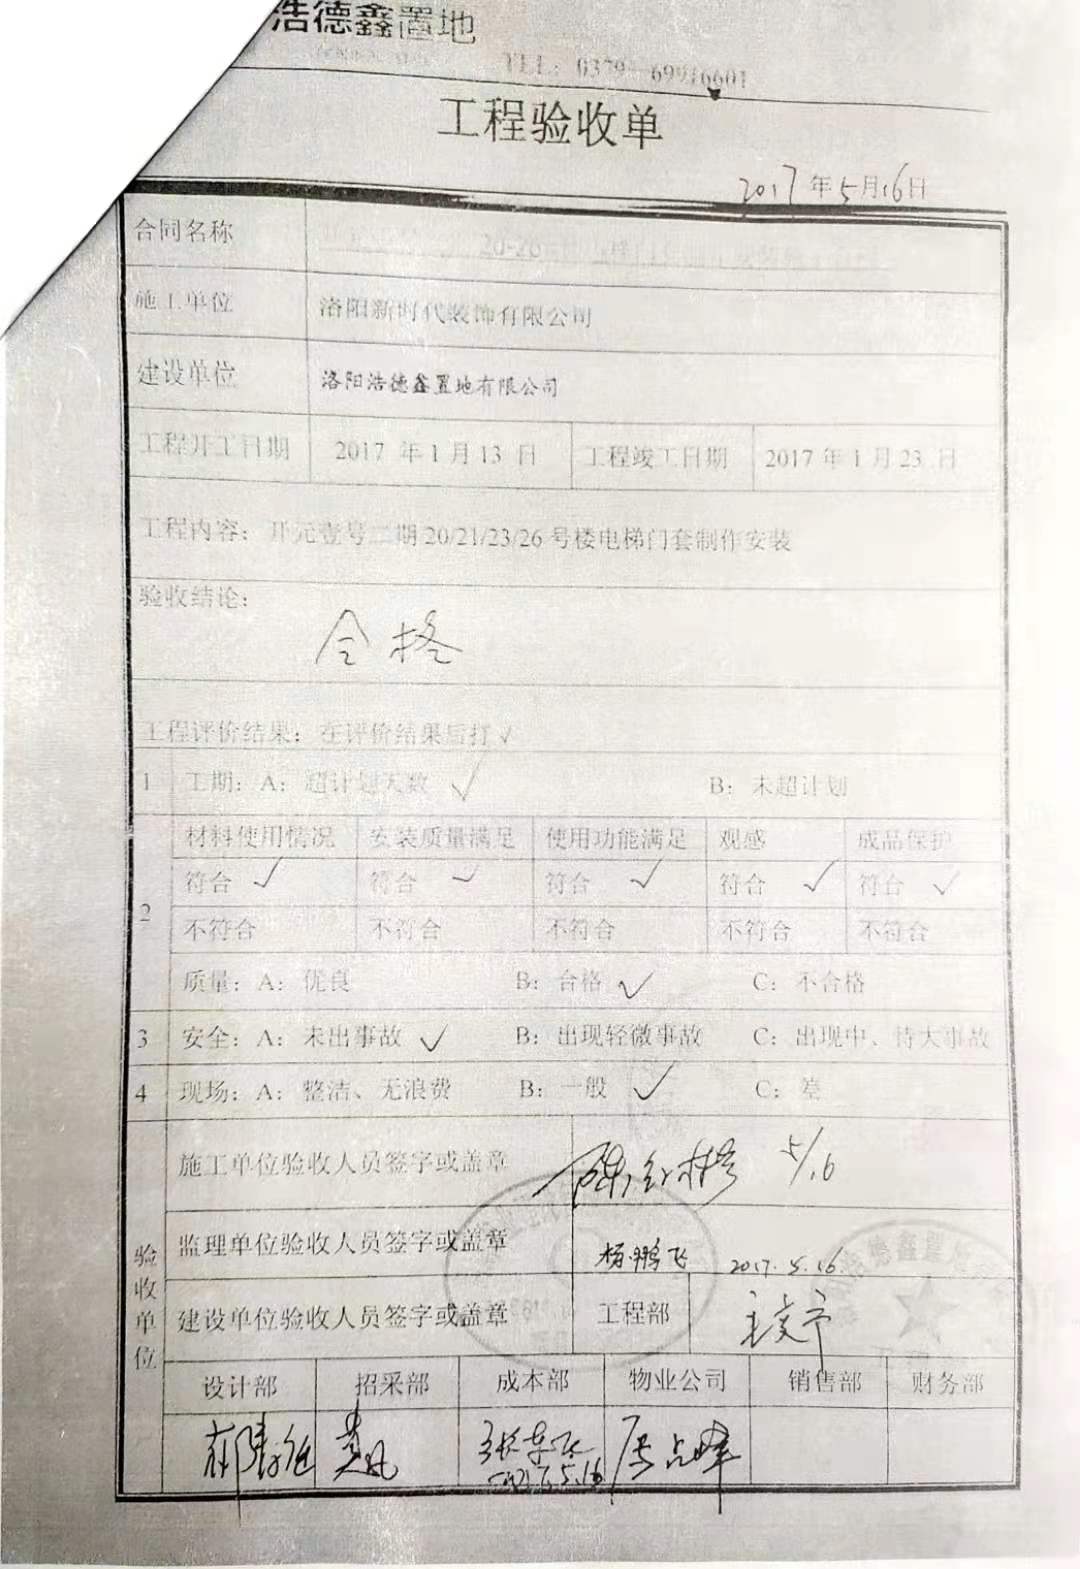 浩德鑫置地
TEL: 0379-69916601
工程验收单
2017年5月16日
合同名称
施工单位 洛阳新时代装饰有限公司
建设单位 洛阳浩德鑫置地有限公司
工程开工日期 2017 年 1 月 13 日 工程竣工日期 2017 年 1 月 23 日
工程内容：开元壹号二期 20/21/23/26 号楼电梯门套制作安装
验收结论：
合格
工程评价结果：在评价结果后打✓
1 工期：A：超计划天数 ✓ B：未超计划
材料使用情况 安装质量满足 使用功能满足 观感 成品保护
符合 ✓ 符合 ✓ 符合 ✓ 符合 ✓ 符合 ✓
2
不符合 不符合 不符合 不符合 不符合
质量：A：优良 B：合格 ✓ C：不合格
3 安全：A：未出事故 ✓ B：出现轻微事故 C：出现中、特大事故
4 现场：A：整洁、无浪费 B：一般 ✓ C：差
验收单位
施工单位验收人员签字或盖章 5/16
监理单位验收人员签字或盖章 杨鹏飞 2017.5.16
建设单位验收人员签字或盖章 工程部
设计部 招采部 成本部 物业公司 销售部 财务部
2017.5.16